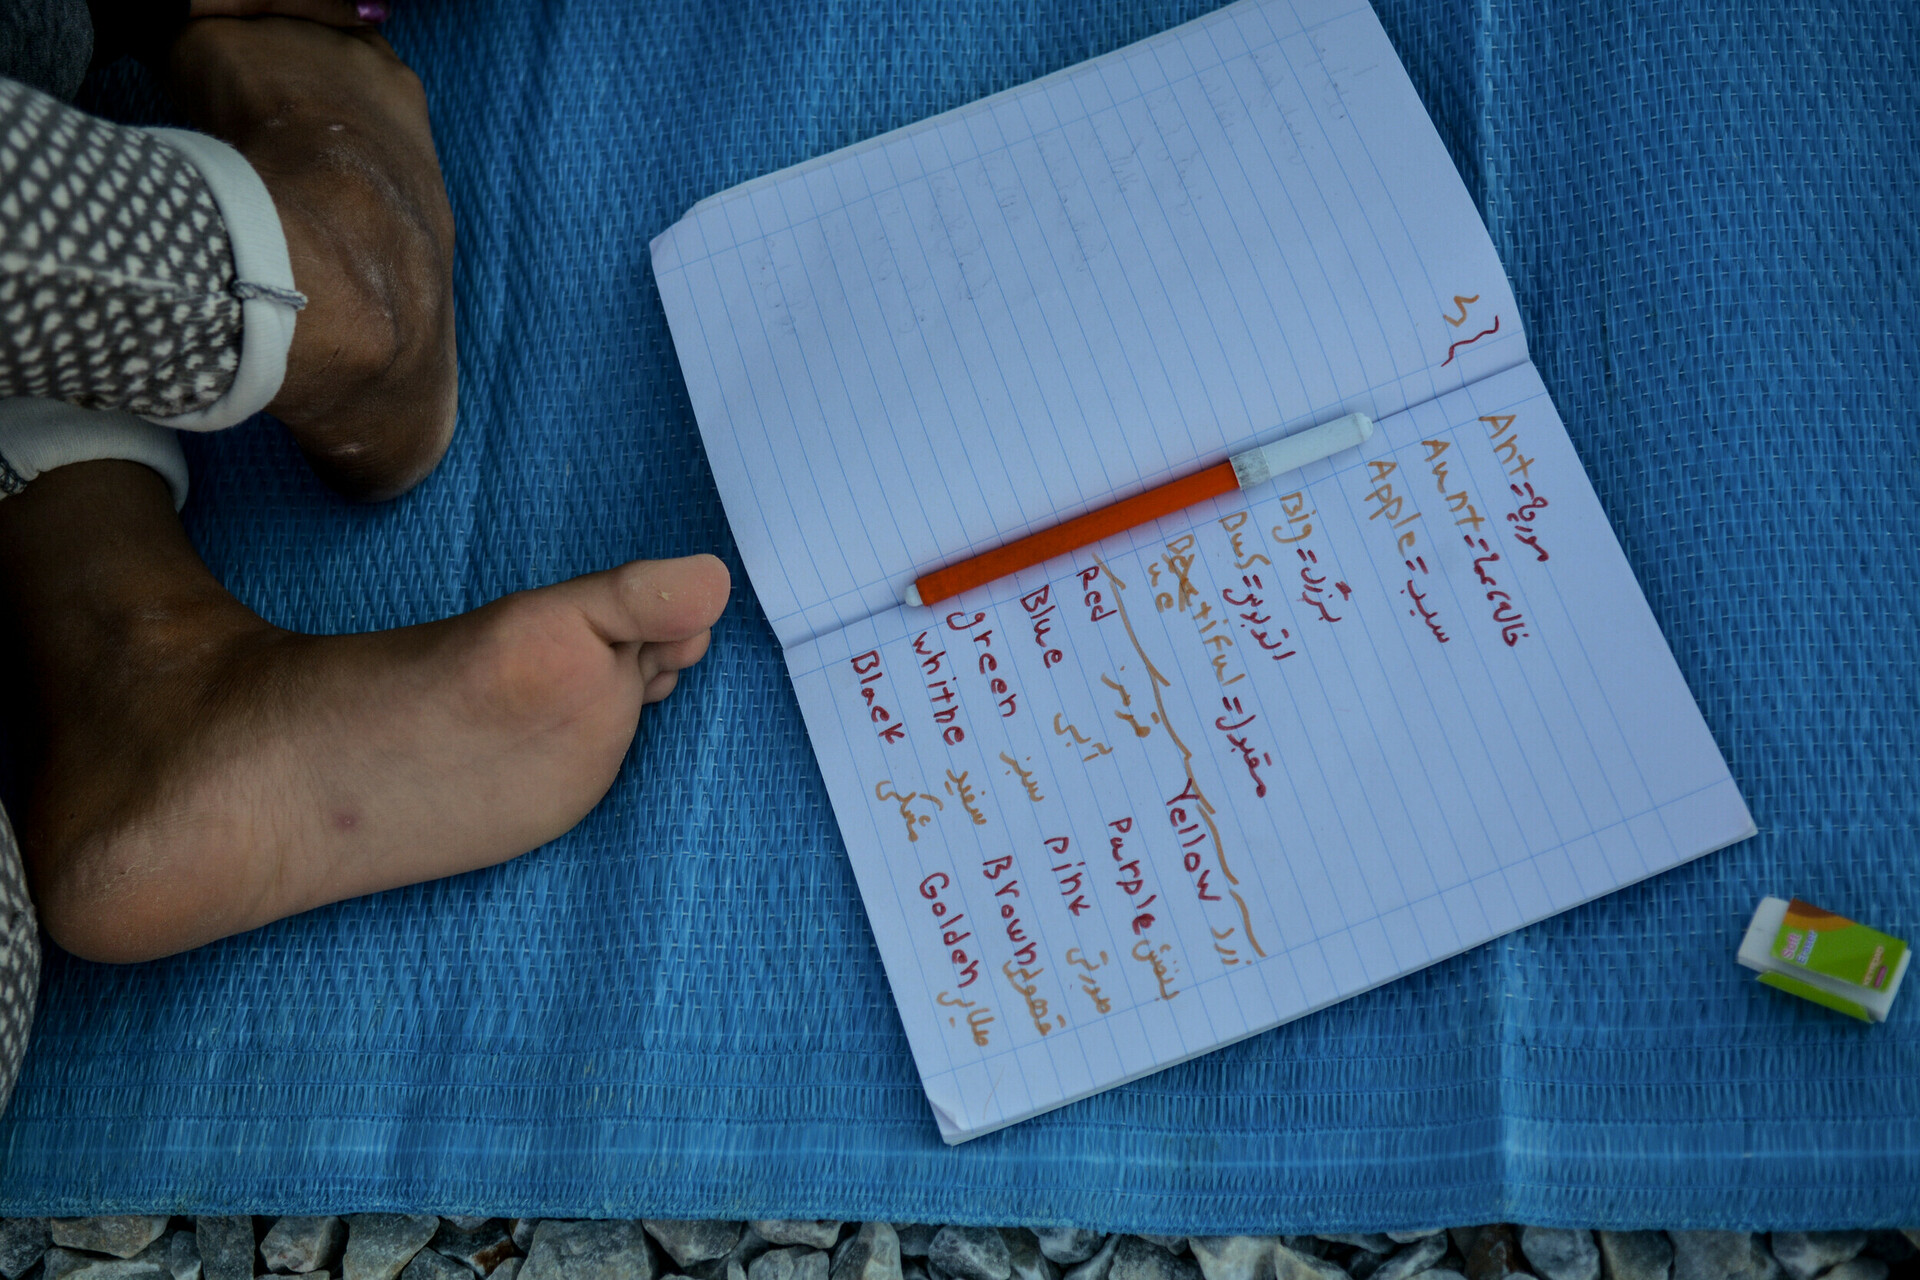 Ant = مورچه
Aunt = خاله، عمه
Apple = سیب
Big = بزرگ
Bus = اتوبوس
Beautiful = مقبول
Red قرمز Yellow زرد
Blue آبی Purple بنفش
green سبز pink صورتی
whithe سفید Brown قهوه‌ی
Black مشکی Golden طلایی
Soft